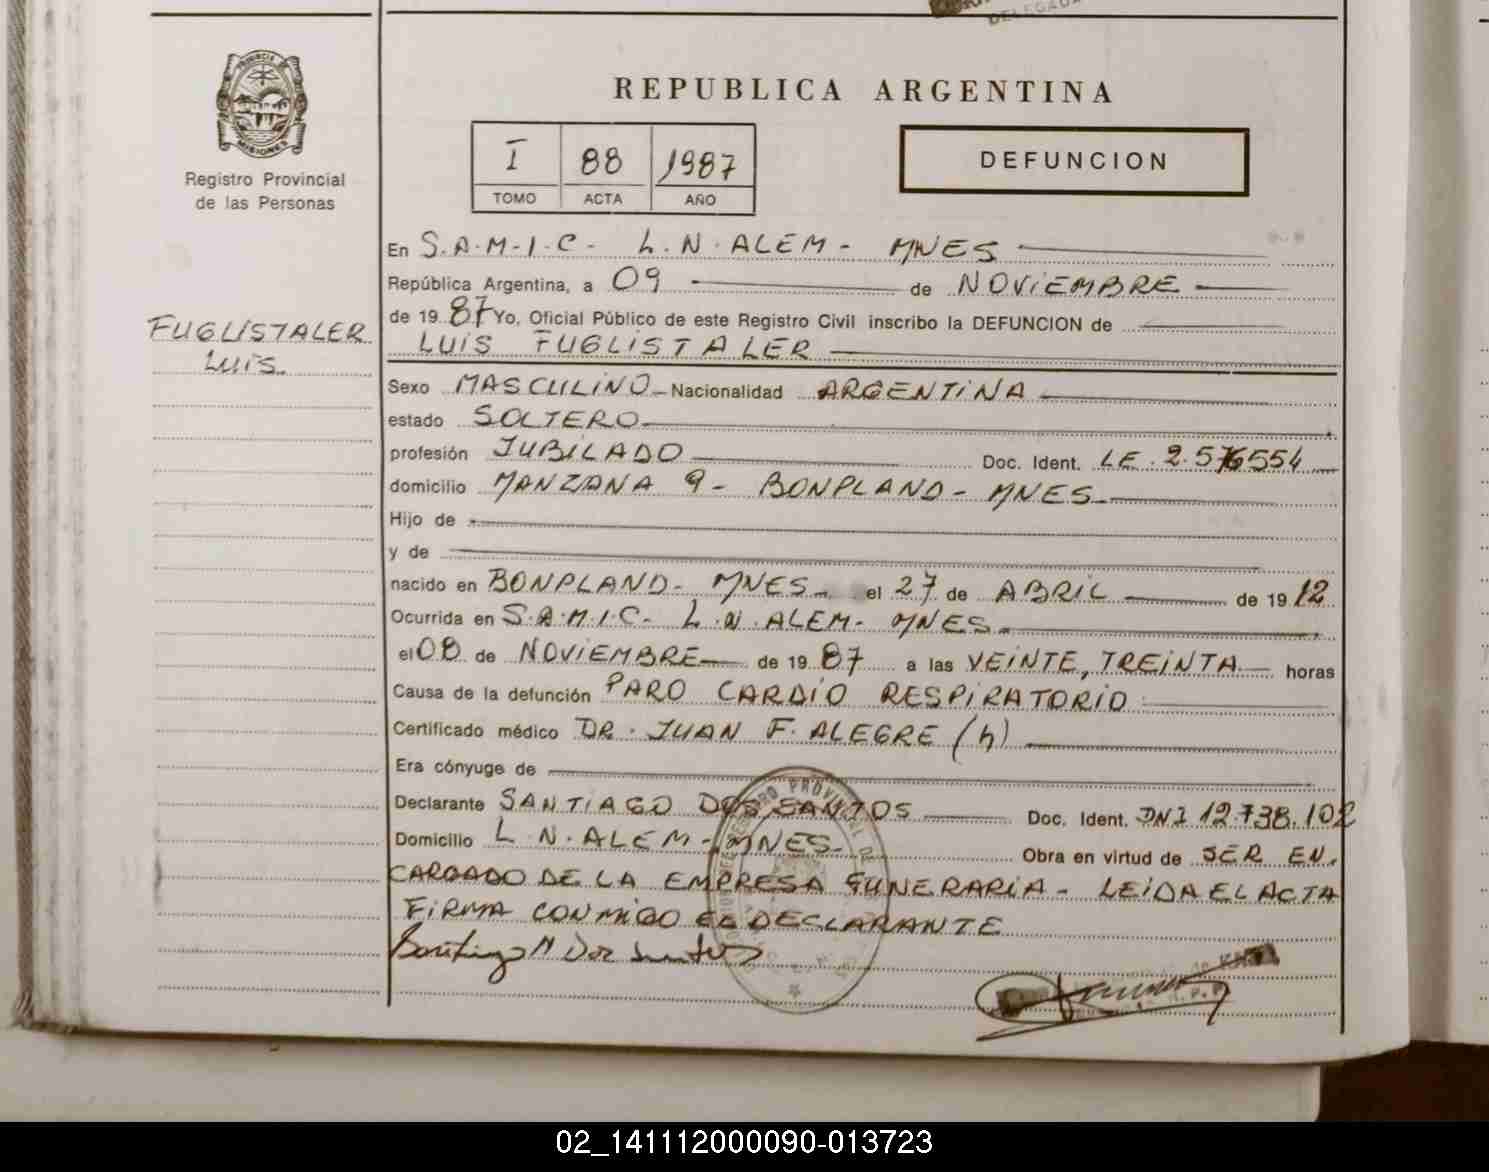 DELEGADA
PROVINCIA DE
MISIONES
Registro Provincial
de las Personas
FUGLISTALER
LUIS.
REPUBLICA ARGENTINA
I 88 1987
TOMO ACTA AÑO
DEFUNCION
En S.A.M.I.C- L.N.ALEM- MNES
República Argentina, a 09 de NOVIEMBRE
de 19 87 Yo, Oficial Público de este Registro Civil inscribo la DEFUNCION de
LUIS FUGLISTALER
Sexo MASCULINO Nacionalidad ARGENTINA
estado SOLTERO
profesión JUBILADO Doc. Ident. LE.2.576554
domicilio MANZANA 9- BONPLAND- MNES
Hijo de
y de
nacido en BONPLAND- MNES- el 27 de ABRIL de 19 12
Ocurrida en S.A.M.I.C- L.N.ALEM- MNES-
el 08 de NOVIEMBRE de 19 87 a las VEINTE, TREINTA horas
Causa de la defunción PARO CARDIO RESPIRATORIO
Certificado médico DR. JUAN F. ALEGRE (h)
Era cónyuge de
Declarante SANTIAGO DOS SANTOS Doc. Ident. DNI 12.738.102
Domicilio L.N.ALEM-MNES- Obra en virtud de SER EN.
CARGADO DE LA EMPRESA FUNERARIA- LEIDA EL ACTA
FIRMA CONMIGO EL DECLARANTE
Santiago Dos Santos
02_141112000090-013723